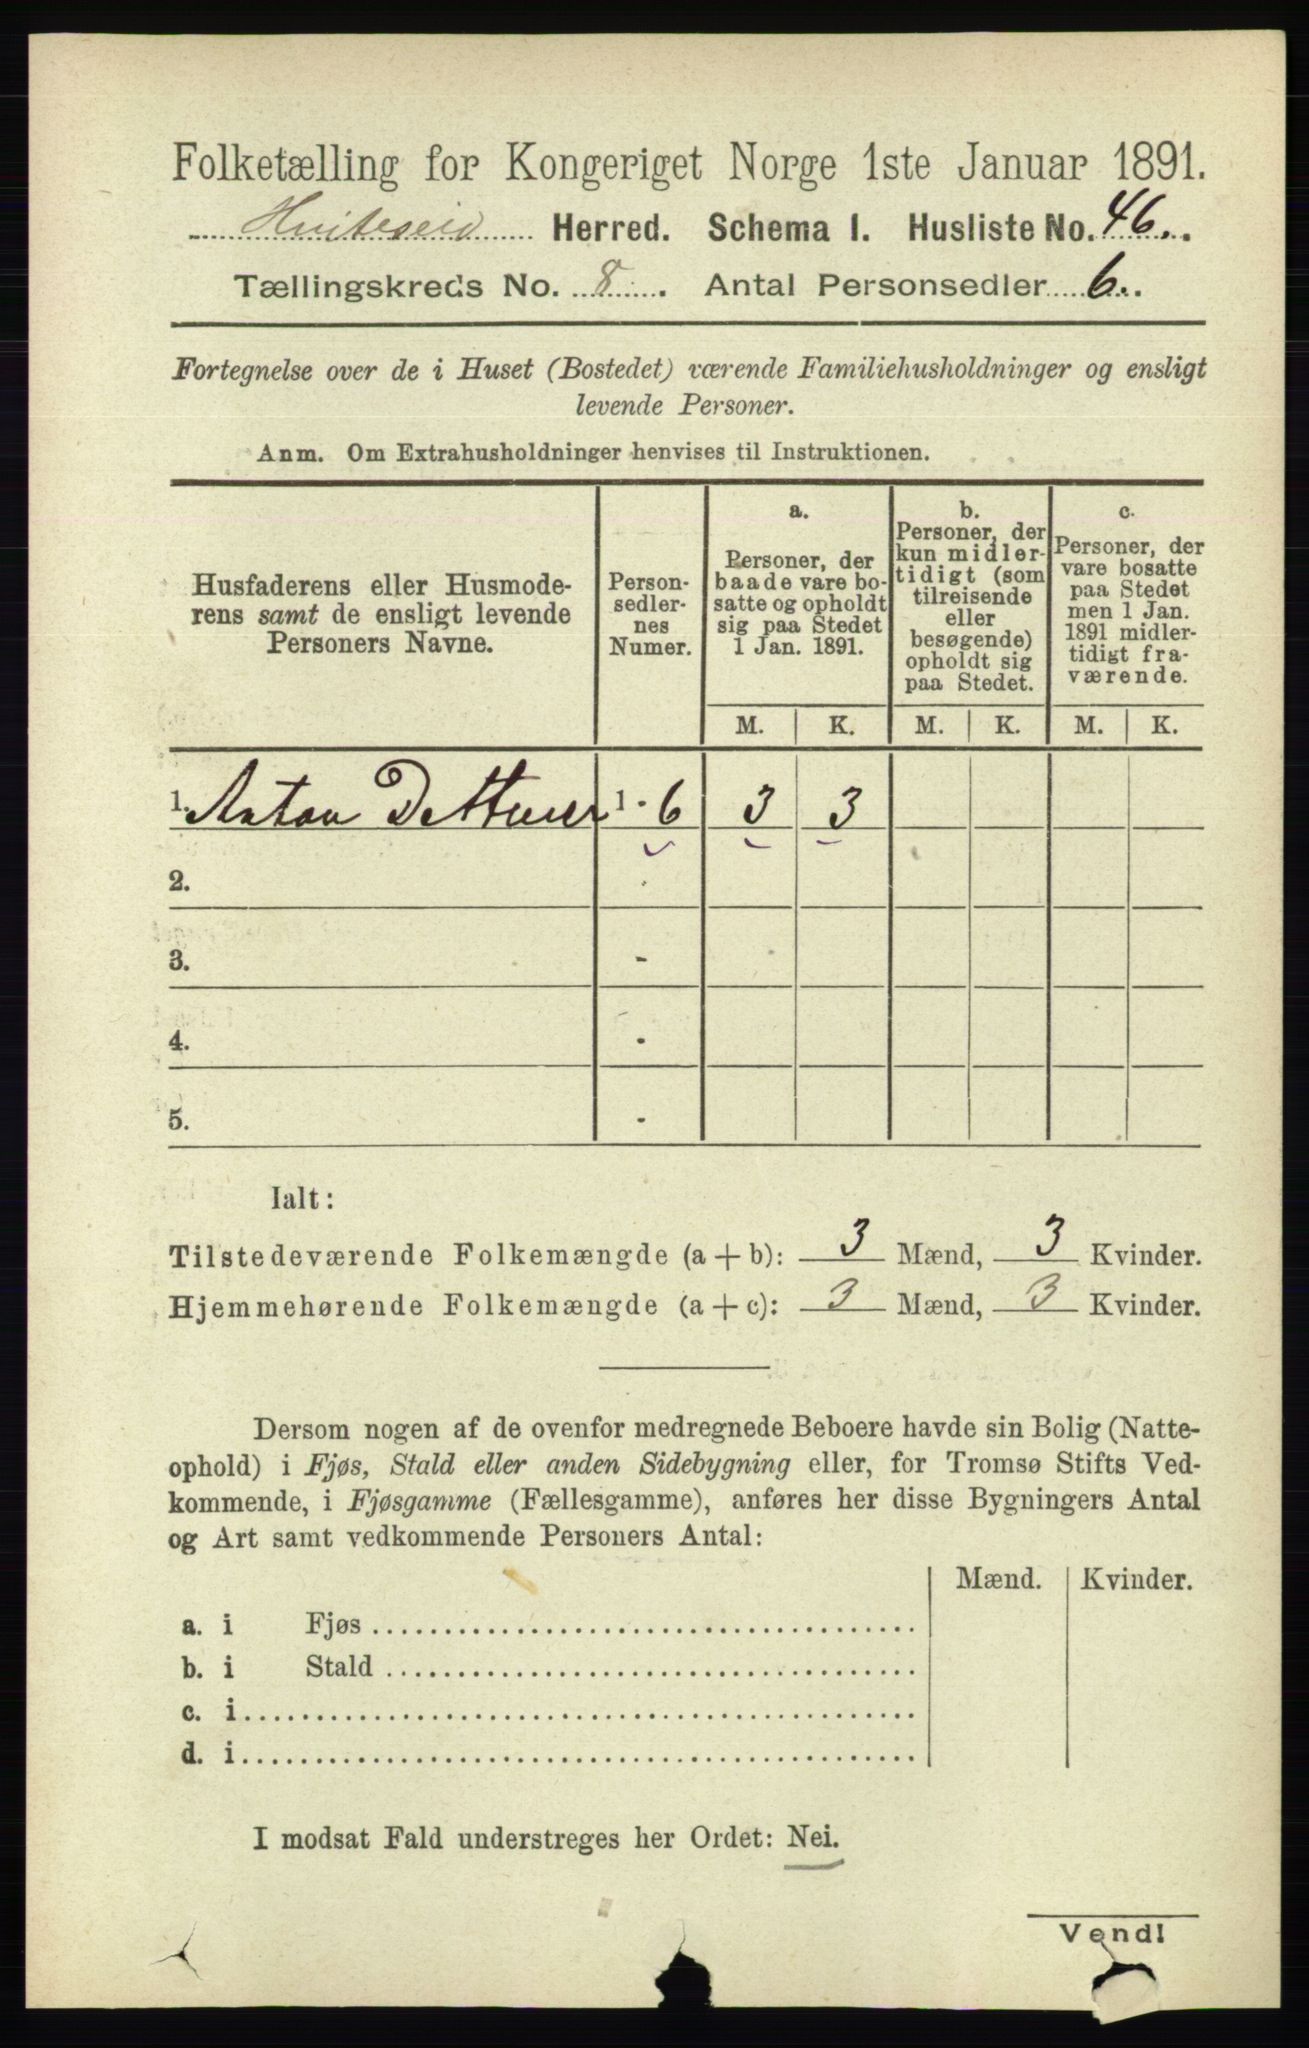 Folketælling for Kongeriget Norge 1ste Januar 1891.
Hviteseid Herred. Schema I. Husliste No. 46.
Tællingskreds No. 8. Antal Personsedler 6.
Fortegnelse over de i Huset (Bostedet) værende Familiehusholdninger og ensligt
levende Personer.
Anm. Om Extrahusholdninger henvises til Instruktionen.
Husfaderens eller Husmode-
rens samt de ensligt levende
Personers Navne.
Person-
sedler-
nes
Numer.
a.
Personer, der
baade vare bo-
satte og opholdt
sig paa Stedet
1 Jan. 1891.
b.
Personer, der
kun midler-
tidigt (som
tilreisende
eller
besøgende)
opholdt sig
paa Stedet.
c.
Personer, der
vare bosatte
paa Stedet
men 1 Jan.
1891 midler-
tidigt fra-
værende.
M. K. M. K. M. K.
1. Anton 1 - 6 3 3
2. -
3. -
4. -
5. -
Ialt:
Tilstedeværende Folkemængde (a + b): 3 Mænd, 3 Kvinder.
Hjemmehørende Folkemængde (a + c): 3 Mænd, 3 Kvinder.
Dersom nogen af de ovenfor medregnede Beboere havde sin Bolig (Natte-
ophold) i Fjøs, Stald eller anden Sidebygning eller, for Tromsø Stifts Ved-
kommende, i Fjøsgamme (Fællesgamme), anføres her disse Bygningers Antal
og Art samt vedkommende Personers Antal:
Mænd. Kvinder.
a. i Fjøs
b. i Stald
c. i
d. i
I modsat Fald understreges her Ordet: Nei.
Vend!